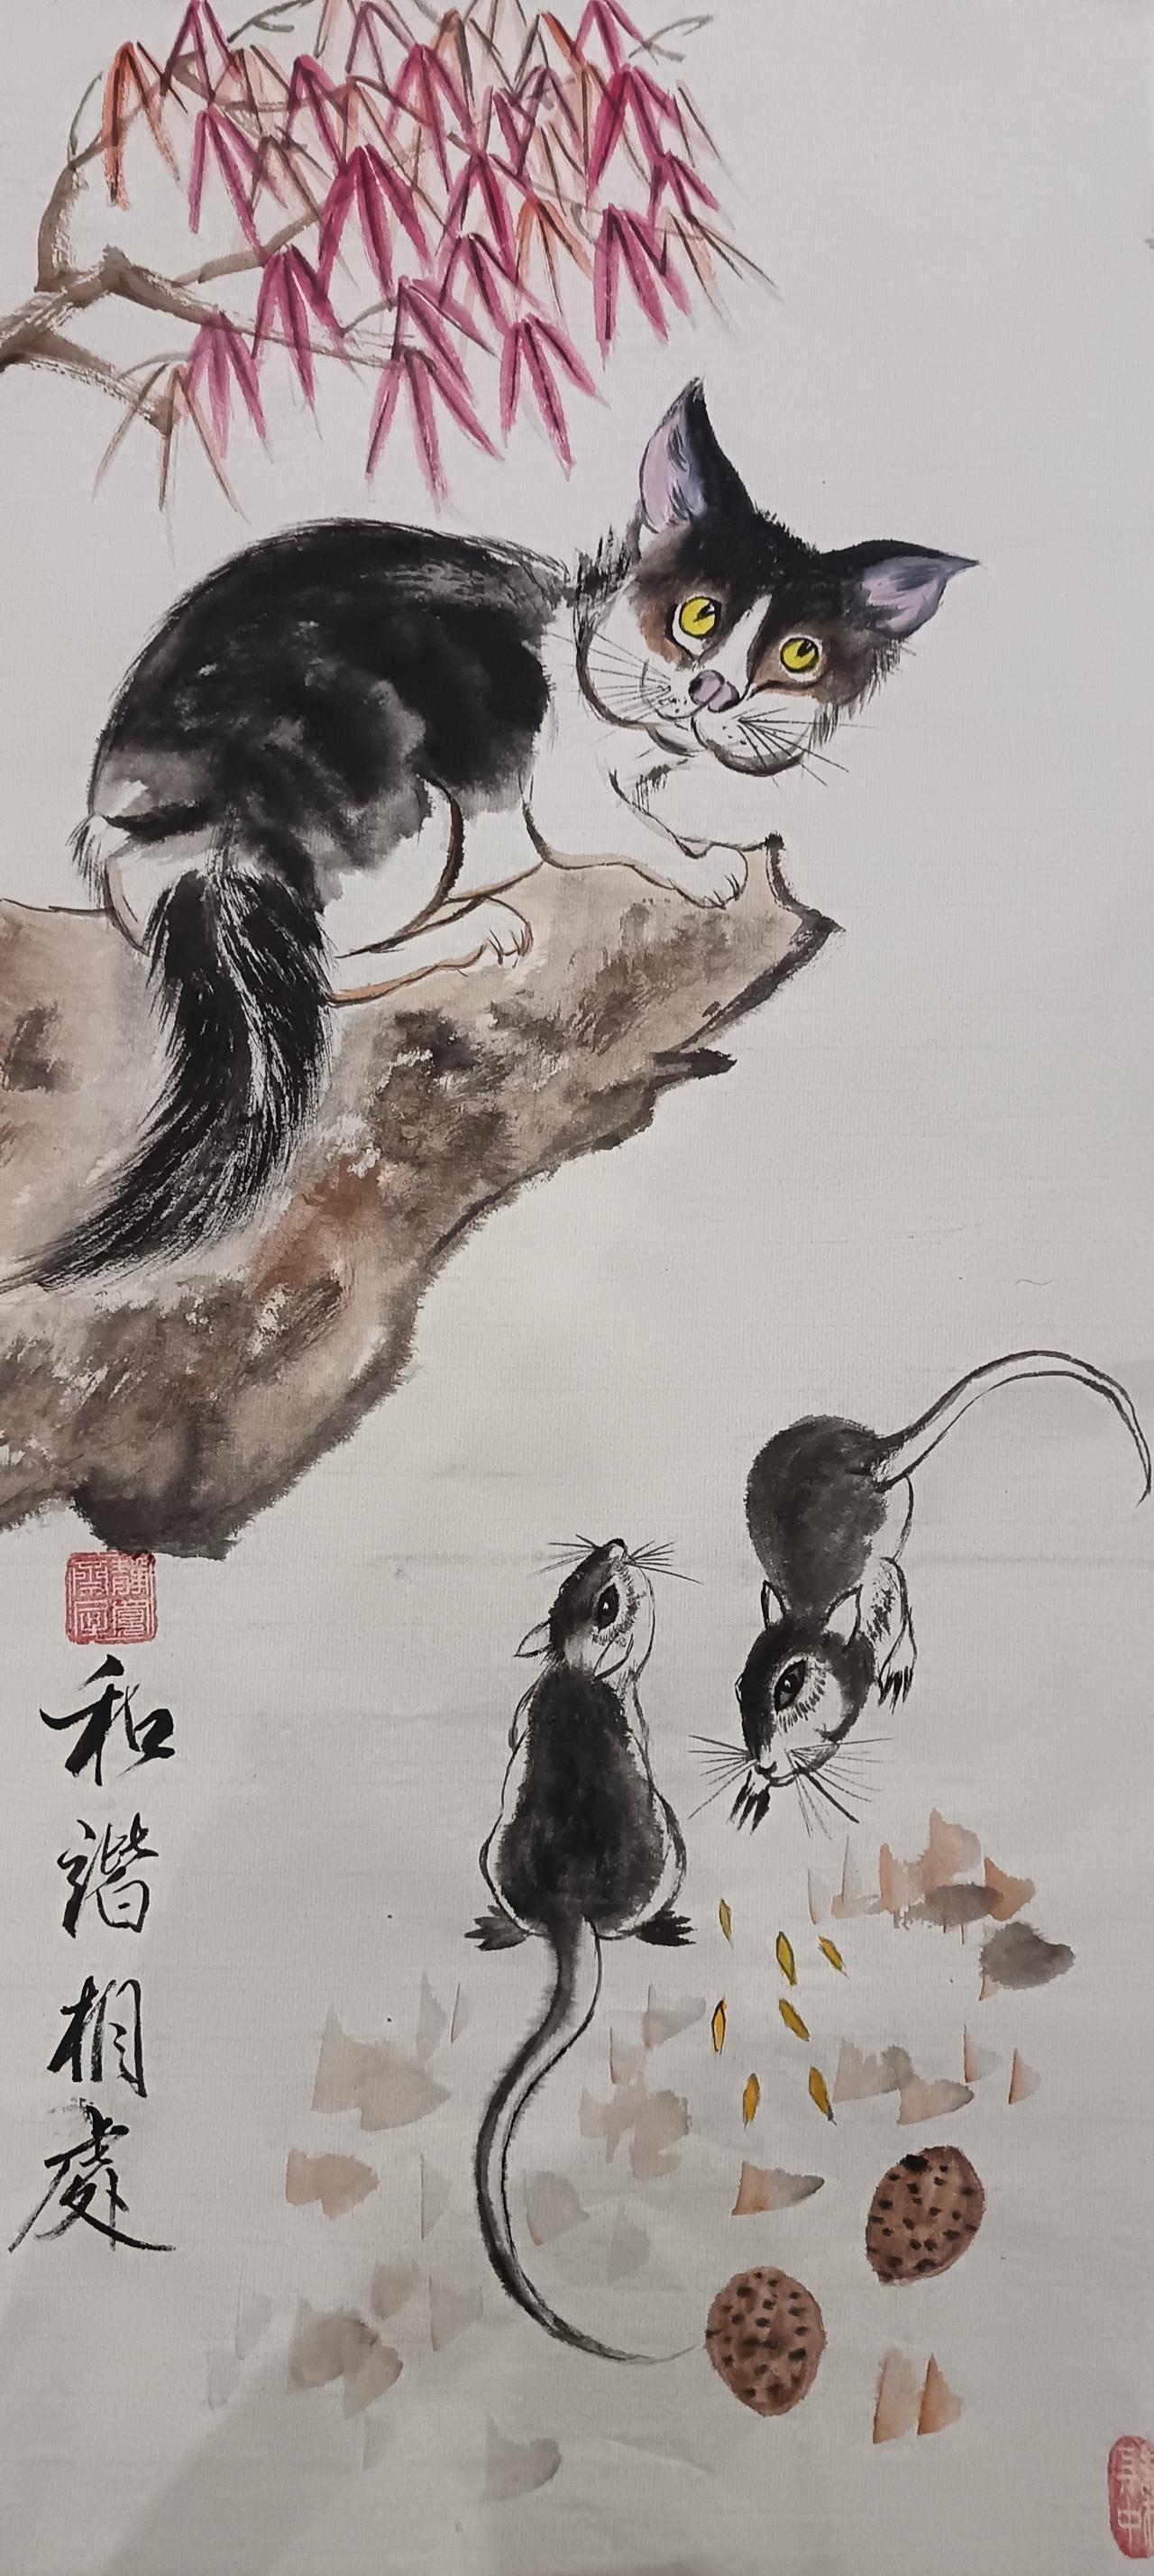 和諧相處